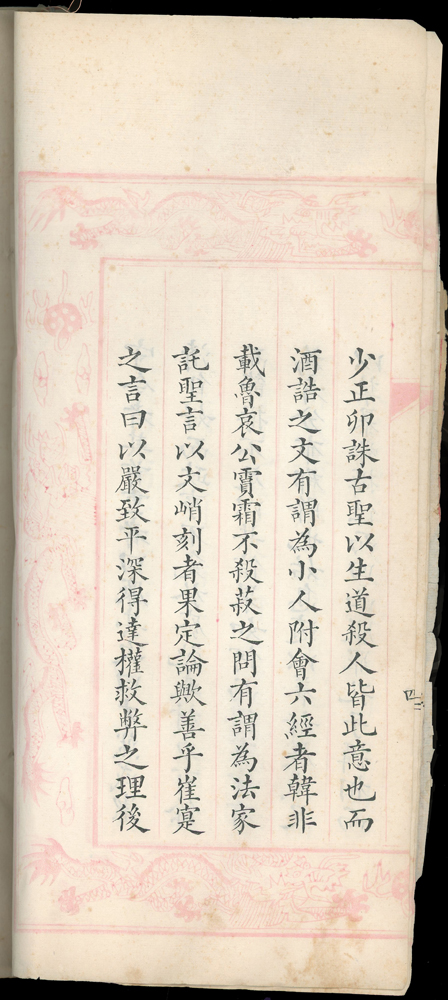 少正卯誅古聖以生道殺人皆此意也而
酒誥之文有謂為小人附會六經者韓非
載魯哀公霣霜不殺菽之問有謂為法家
託聖言以文峭刻者果定論歟善乎崔寔
之言曰以嚴致平深得達權救弊之理後